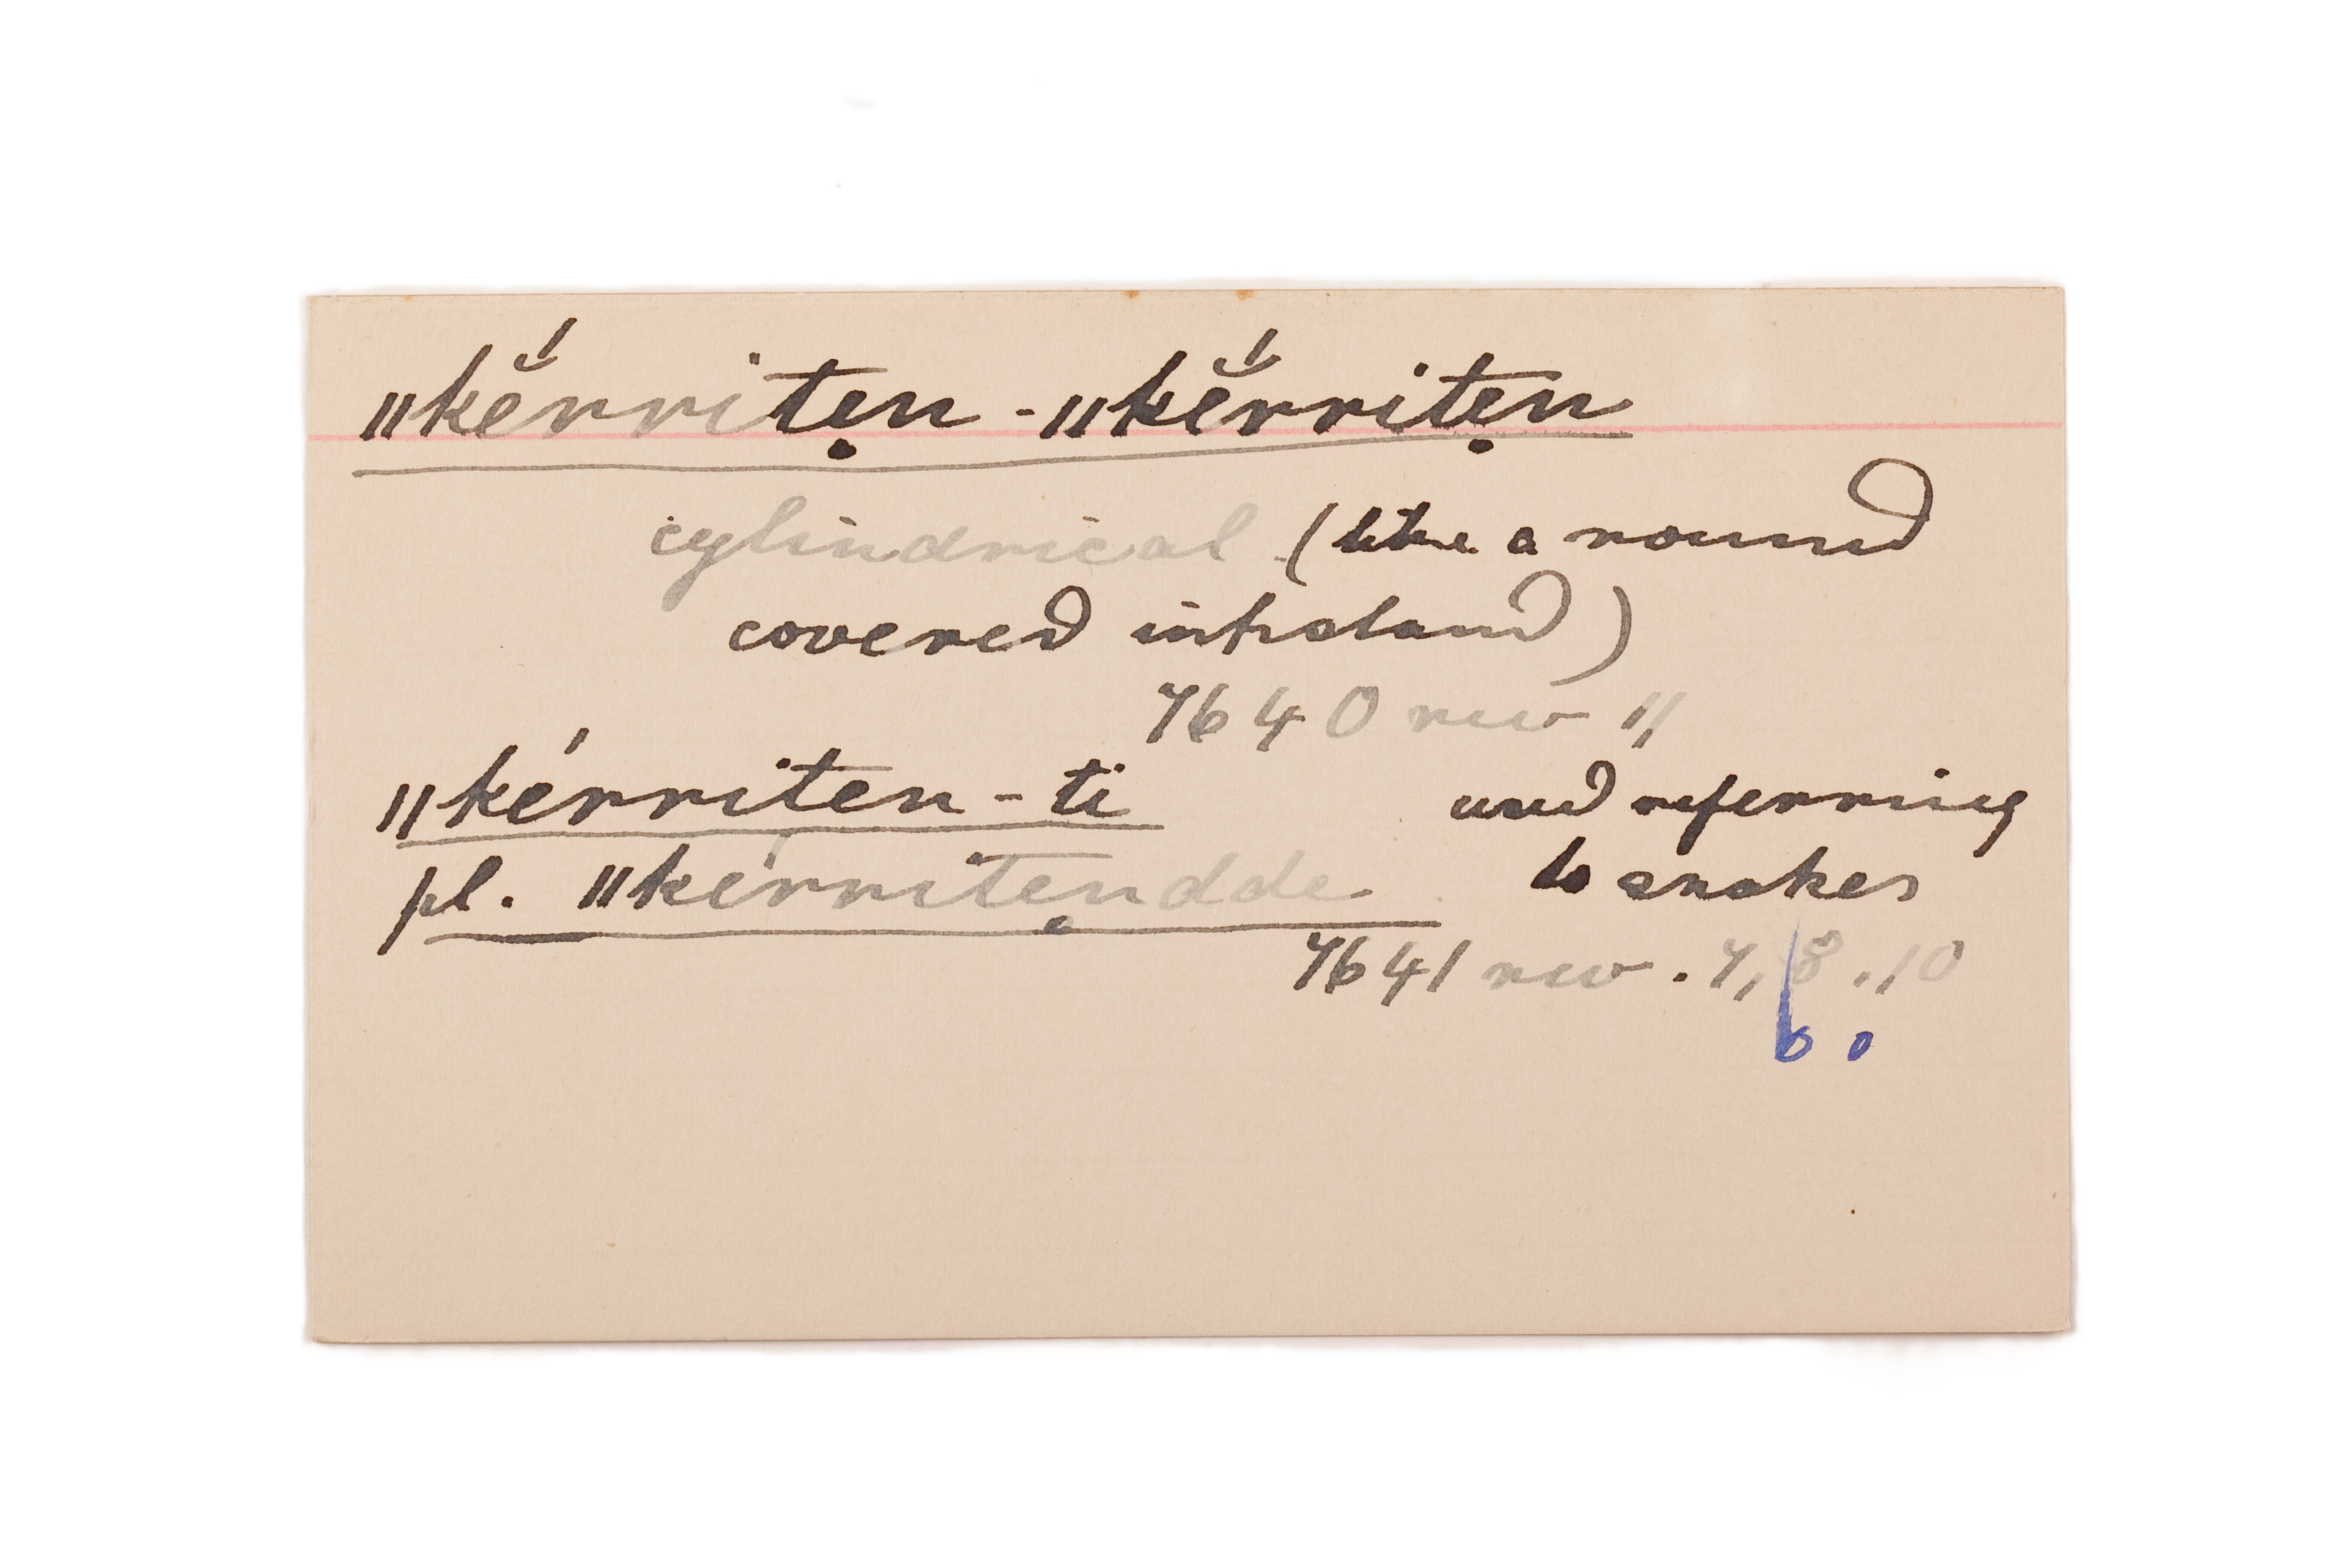 ǁkĕ́rritẹn - ǁkĕ́rritẹn
cylindrical (like a round
covered inkstand)
7640 rev 11
ǁkérriten - ti used referring
pl. ǁkérritẹndde to snakes
7641 rev . 7, 8 . 10